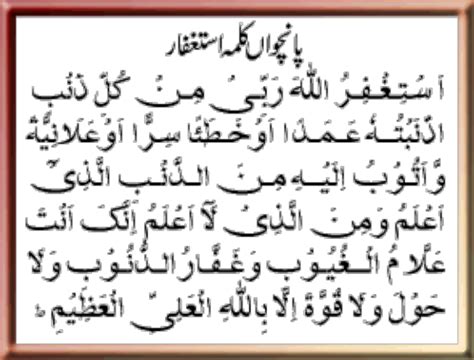 پانچواں کلمہ استغفار
اَسْتَغْفِرُ اللهَ رَبِّیْ مِنْ کُلِّ ذَنْۢبٍ
اَذْنَبْتُهٗ عَمَدًا اَوْ خَطَئًا سِرًّا اَوْ عَلَانِیَةً
وَّاَتُوْبُ اِلَیْهِ مِنَ الذَّنْۢبِ الَّذِیْٓ
اَعْلَمُ وَمِنَ الَّذِیْ لَآ اَعْلَمُ اِنَّكَ اَنْتَ
عَلَّامُ الْغُیُوْبِ وَغَفَّارُ الذُّنُوْبِ وَلَا
حَوْلَ وَلَا قُوَّةَ اِلَّا بِاللهِ الْعَلِیِّ الْعَظِیْمِ ؕ